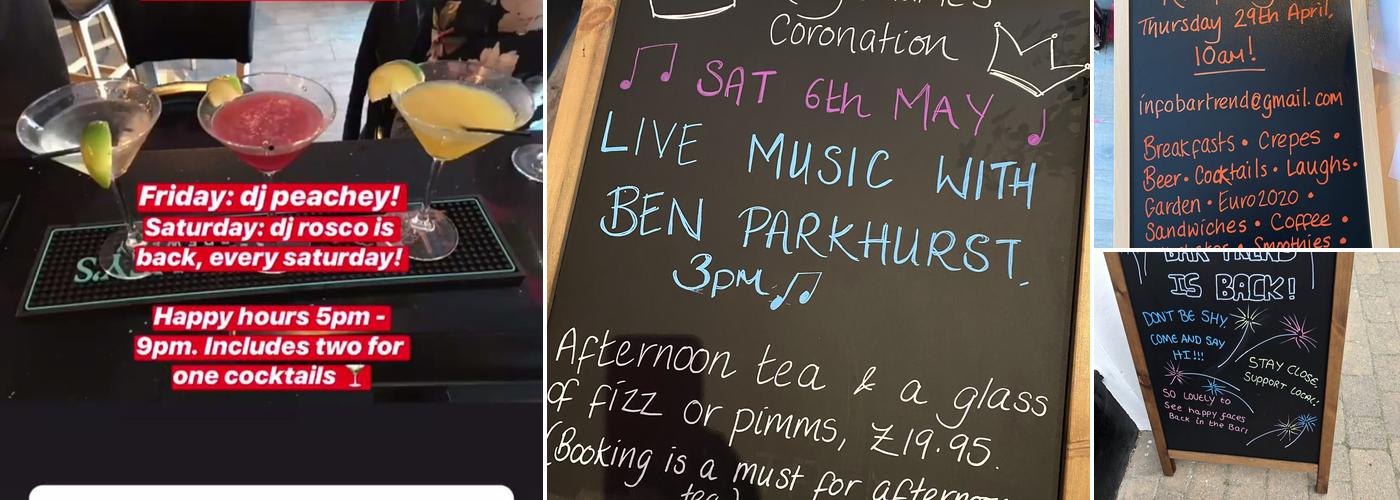 Friday: dj peachey!
Saturday: dj rosco is
back, every saturday!
Happy hours 5pm -
9pm. Includes two for
one cocktails 🍸
Coronation
SAT 6th MAY
LIVE MUSIC WITH
BEN PARKHURST.
3pm
Afternoon tea & a glass
of fizz or pimms, £19.95.
(Booking is a must for afternoon
tea)
Thursday 29th April,
10am!
infobartrend@gmail.com
Breakfasts • Crepes •
Beer • Cocktails • Laughs •
Garden • Euro2020 •
Sandwiches • Coffee •
Smoothies •
BAR TREND
IS BACK!
DON'T BE SHY,
COME AND SAY
HI!!!
STAY CLOSE,
SUPPORT LOCAL!
SO LOVELY to
see happy faces
Back in the Bar!